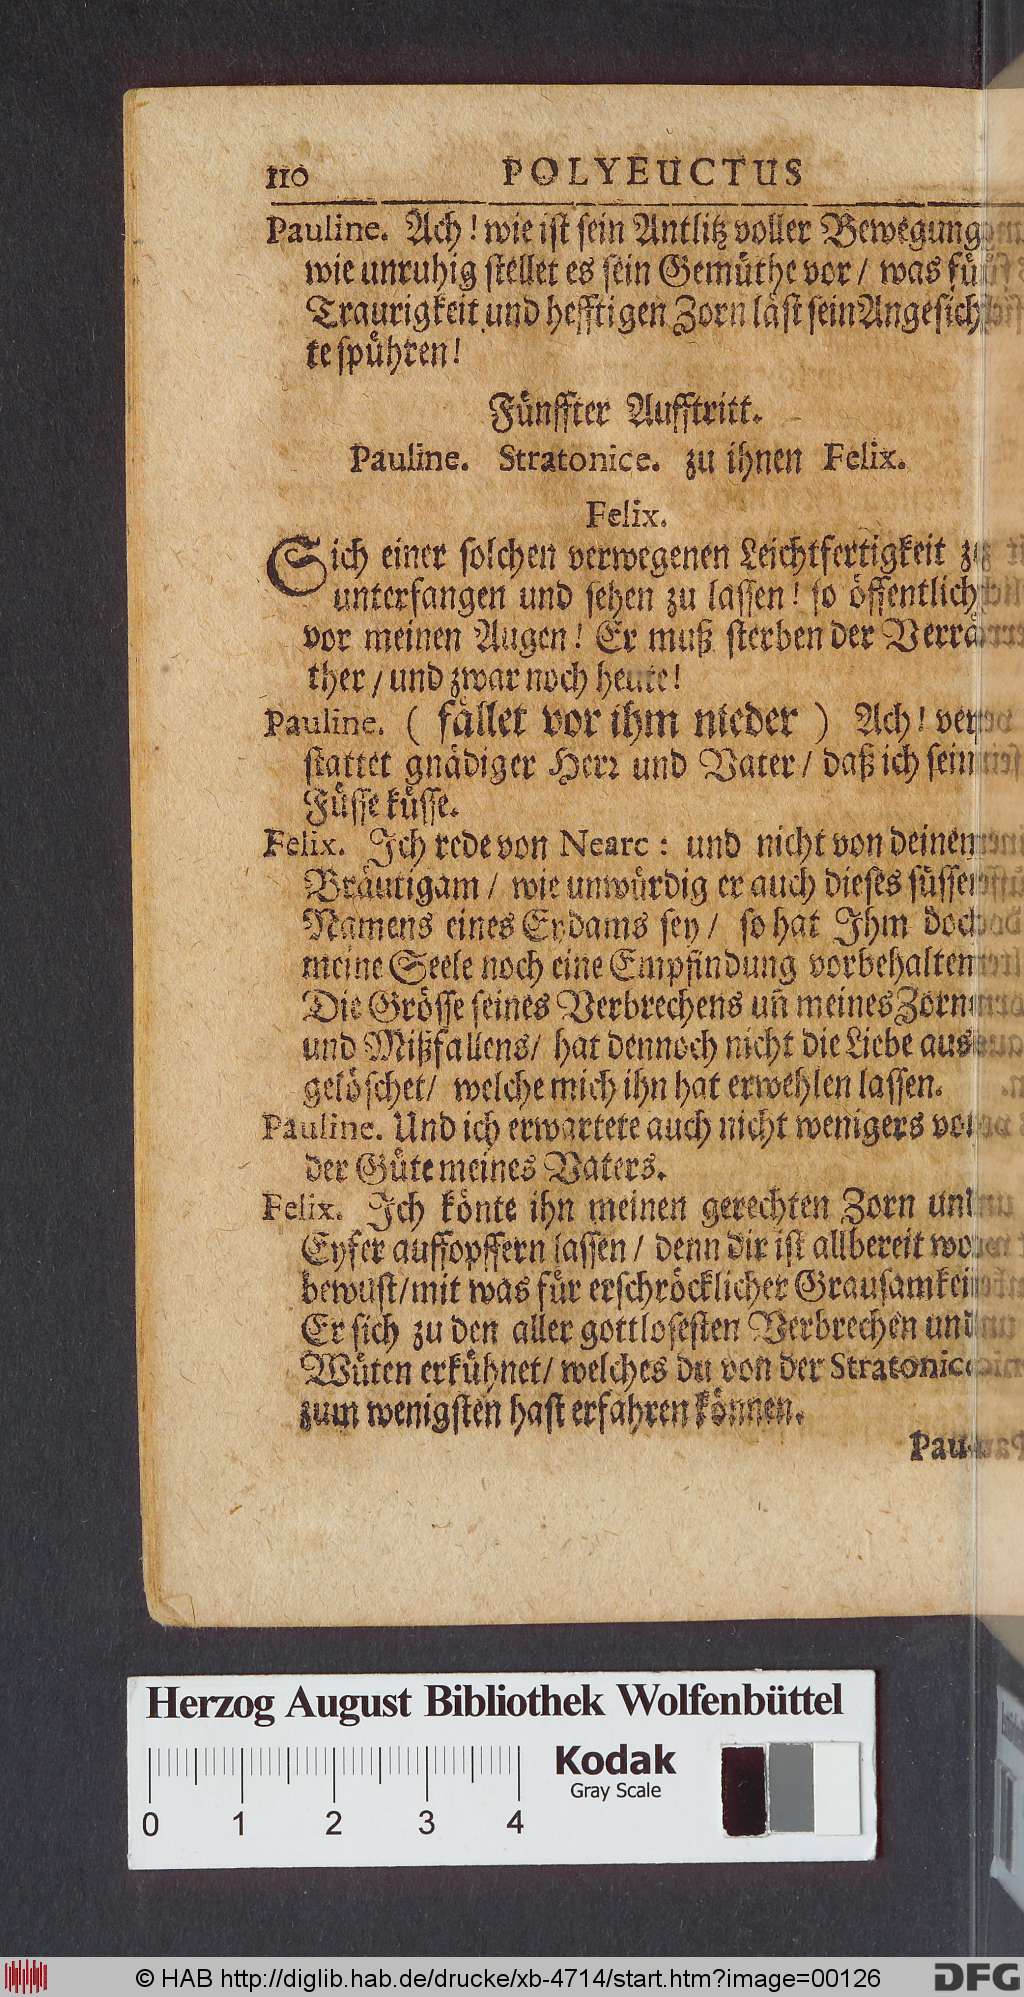 110 POLYEUCTUS
Pauline. Ach! wie ist sein Antlitz voller Bewegung
wie unruhig stellet es sein Gemüthe vor / was für
Traurigkeit und hefftigen Zorn läst sein Angesich-
te spühren!
Fünffter Aufftritt.
Pauline. Stratonice. zu ihnen Felix.
Felix.
Sich einer solchen verwegenen Leichtfertigkeit zu
unterfangen und sehen zu lassen! so öffentlich
vor meinen Augen! Er muß sterben der Verrä-
ther / und zwar noch heute!
Pauline. ( fället vor ihm nieder ) Ach! ver-
stattet gnädiger Herr und Vater / daß ich sein
Füsse küsse.
Felix. Ich rede von Nearc: und nicht von deinem
Bräutigam / wie unwürdig er auch dieses süssen
Namens eines Eydams sey / so hat Ihm doch
meine Seele noch eine Empfindung vorbehalten
Die Grösse seines Verbrechens uñ meines Zorn
und Mißfallens / hat dennoch nicht die Liebe aus-
gelöschet / welche mich ihn hat erwehlen lassen.
Pauline. Und ich erwartete auch nicht wenigers von
der Güte meines Vaters.
Felix. Ich könte ihn meinen gerechten Zorn und
Eyfer auffopffern lassen / denn dir ist allbereit wol
bewust / mit was für erschröcklicher Grausamkeit
Er sich zu den aller gottlosesten Verbrechen und
Wüten erkühnet / welches du von der Stratonice
zum wenigsten hast erfahren können.
Pau-
Herzog August Bibliothek Wolfenbüttel
Kodak
Gray Scale
0 1 2 3 4
© HAB http://diglib.hab.de/drucke/xb-4714/start.htm?image=00126
DFG